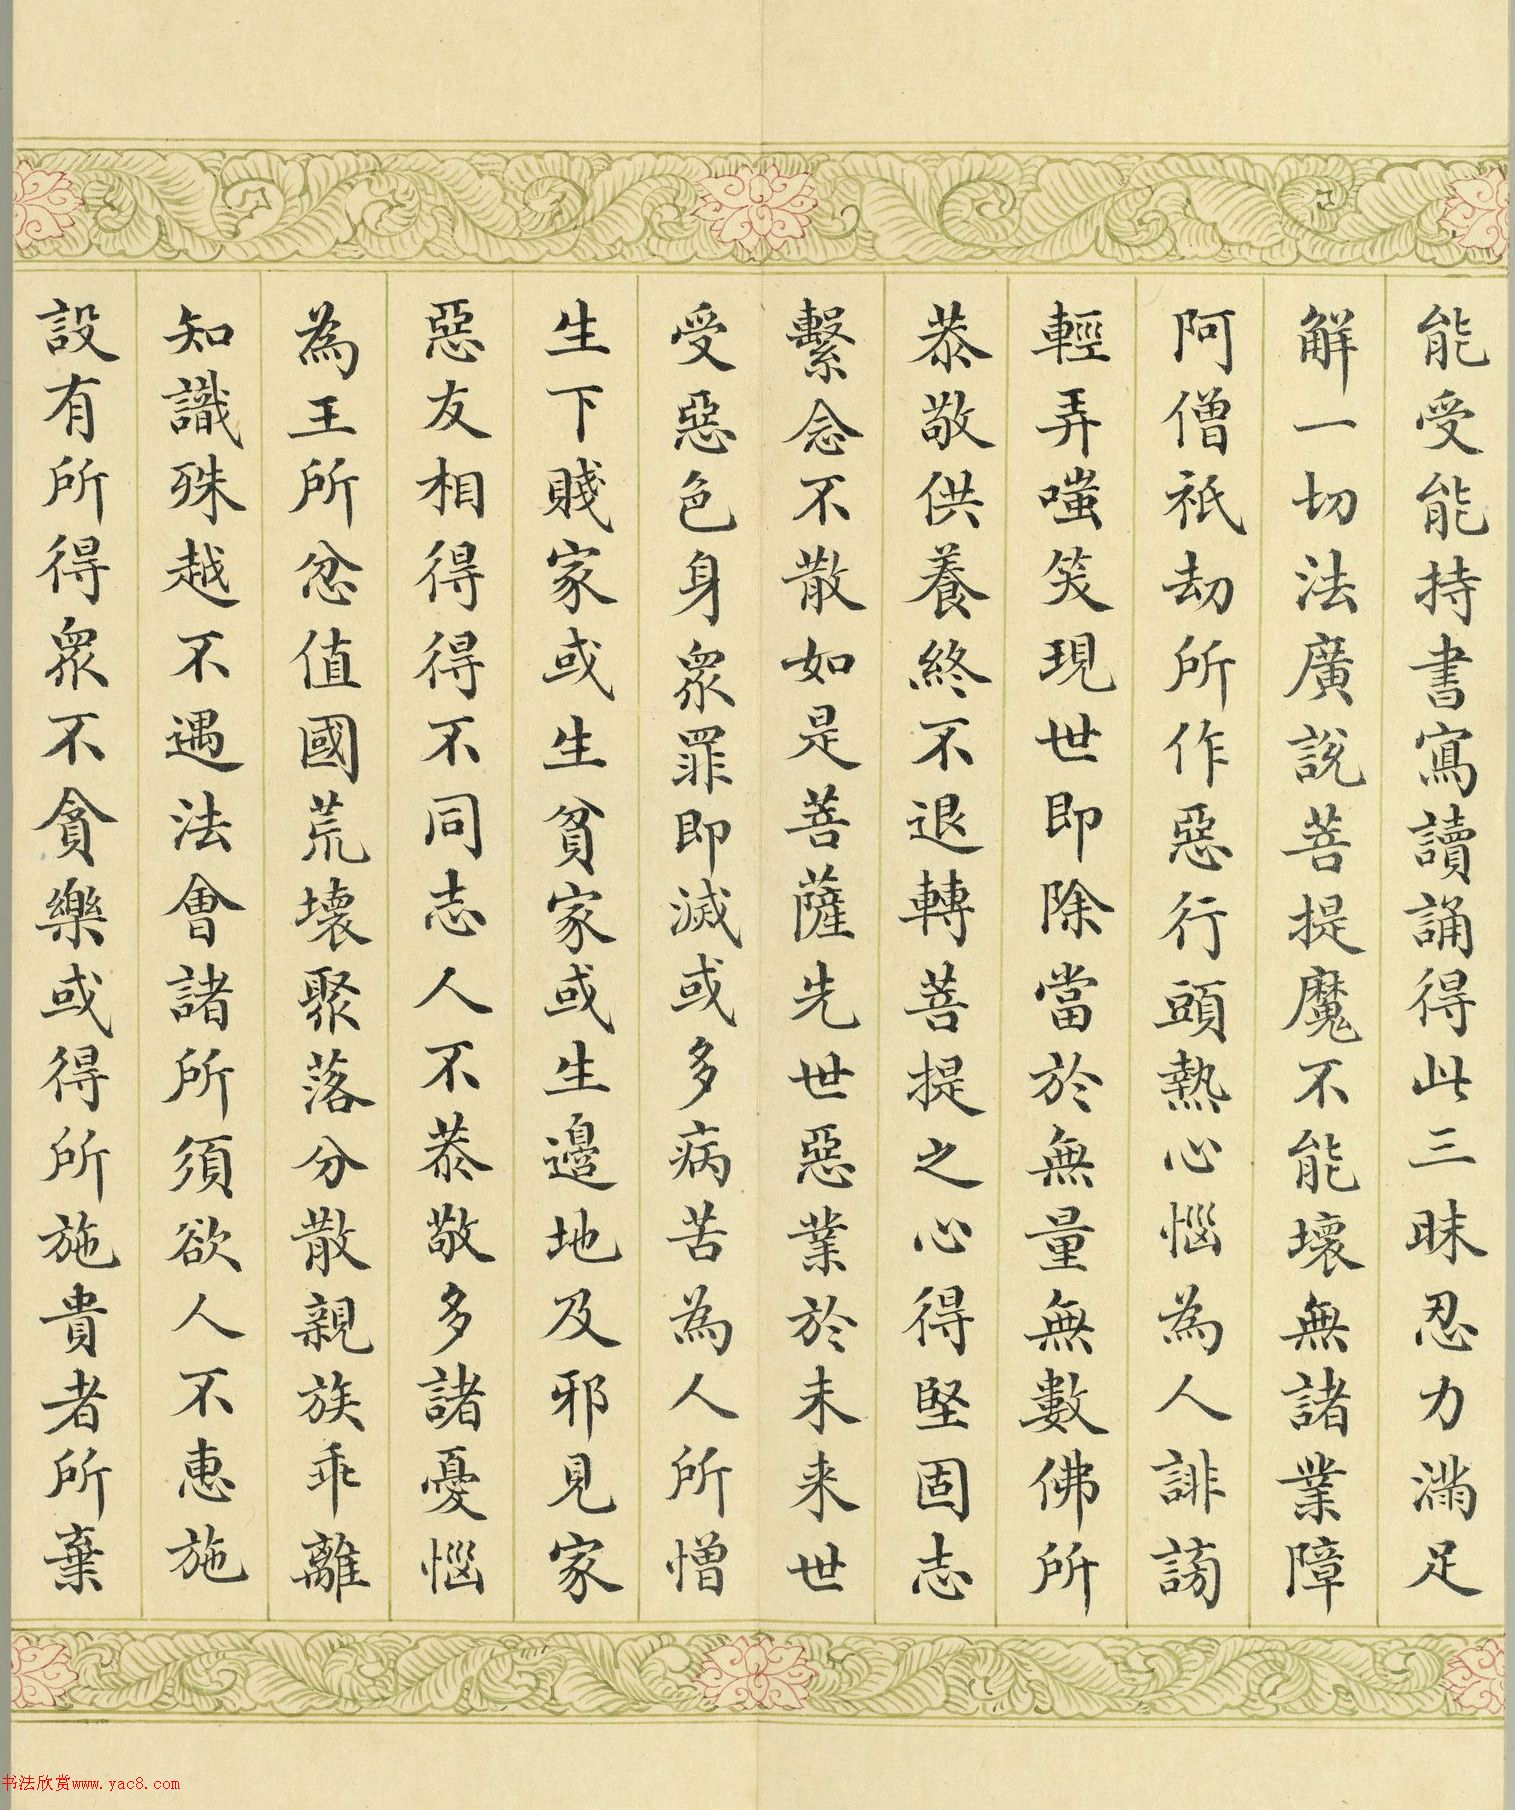 能受能持書寫讀誦得此三昧忍力滿足
解一切法廣說菩提魔不能壞無諸業障
阿僧祇劫所作惡行頭熱心惱為人誹謗
輕弄嗤笑現世即除當於無量無數佛所
恭敬供養終不退轉菩提之心得堅固志
繫念不散如是菩薩先世惡業於未来世
受惡色身眾罪即滅或多病苦為人所憎
生下賤家或生貧家或生邊地及邪見家
惡友相得得不同志人不恭敬多諸憂惱
為王所忿值國荒壞聚落分散親族乖離
知識殊越不遇法會諸所須欲人不惠施
設有所得眾不貪樂或得所施貴者所棄
书法欣赏www.yac8.com